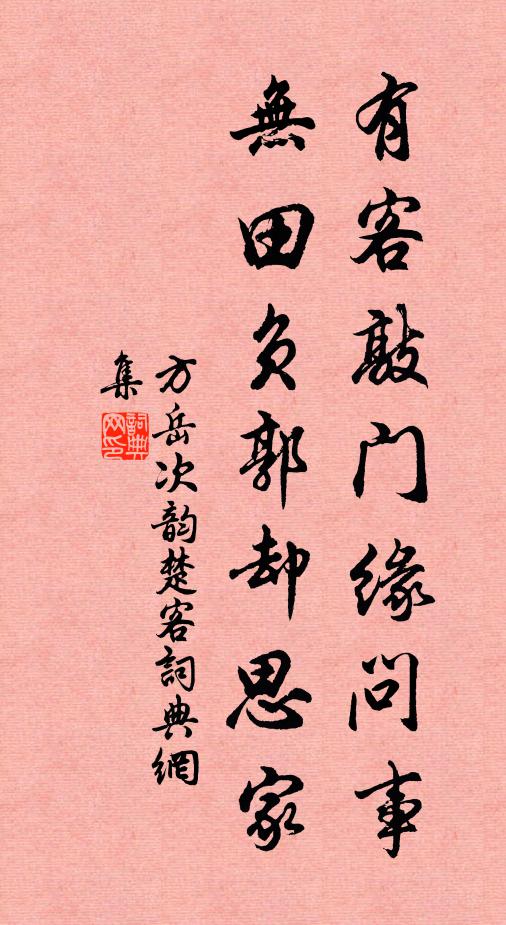 有客敲门缘问事
無田负郭却思家
方岳次韵楚客詞典網
集
詞典网印